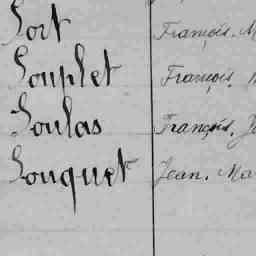 Sort François. M
Souplet François.
Soulas François. J
Souquet Jean. Ma